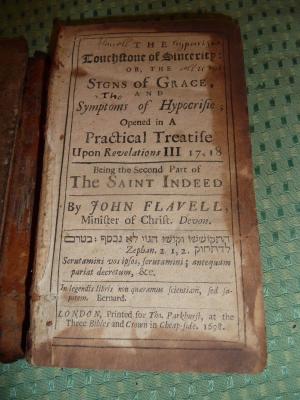 THE
Touchstone of Sincerity:
OR, THE
SIGNS of GRACE,
AND
Symptoms of Hypocrisie;
Opened in A
Practical Treatise
Upon Revelations III 17, 18
Being the Second Part of
The SAINT INDEED
By JOHN FLAVELL,
Minister of Christ. Devon.
Zephan. 2. 1, 2.
Scrutamini vos ipsos, scrutamini; antequam
pariat decretum, &c.
In legendis libris non quæramus scientiam, sed sa-
porem. Bernard.
LONDON, Printed for Tho. Parkhurst, at the
Three Bibles and Crown in Cheap-side. 1698.